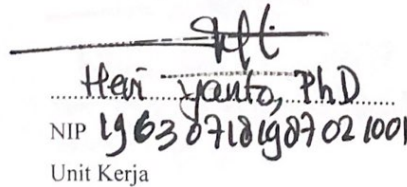 Heri Yanto, PhD
NIP 196307181987021001
Unit Kerja